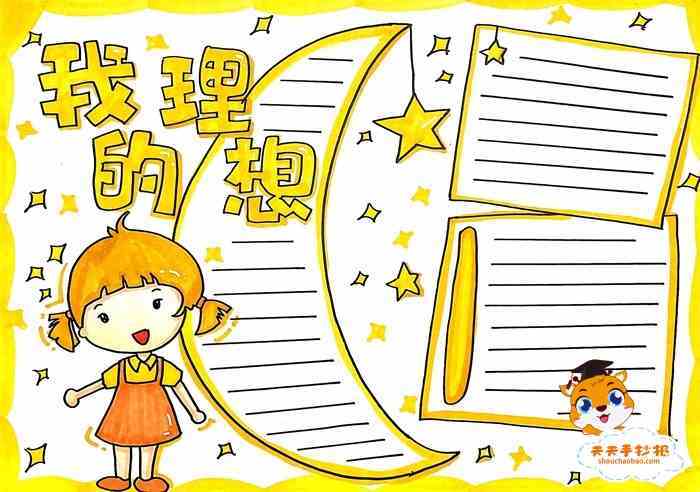 我的理想
天天手抄报
shouchaobao.com